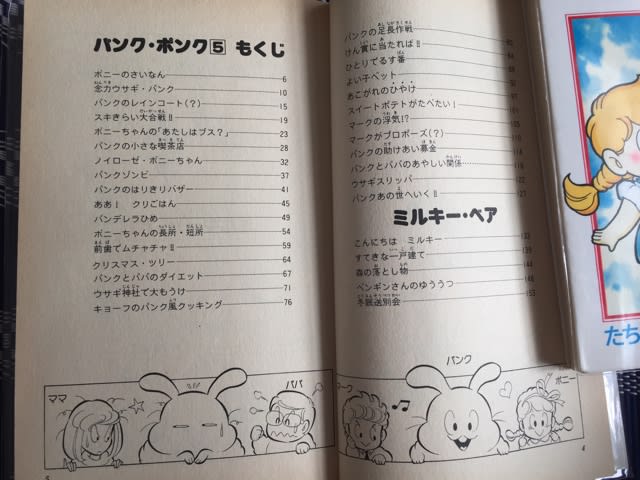 パンク・ポンク5 もくじ
ポニーのさいなん 6
念力ウサギ・パンク 10
パンクのレインコート(?) 15
スキきらい大合戦!! 19
ポニーちゃんの「あたしはブス?」 23
パンクの小さな喫茶店 28
ノイローゼ・ポニーちゃん 32
パンクゾンビ 37
パンクのはりきりバザー 41
ああ! クリごはん 45
パンデレラひめ 49
ポニーちゃんの長所・短所 54
前歯でムチャチャ!! 59
クリスマス・ツリー 64
パンクとパパのダイエット 67
ウサギ神社で大もうけ 71
キョーフのパンク風クッキング 76
ママ
パパ
5
パンクの足長作戦
けん賞に当たれば!!
ひとりでるす番
よい子ペット
あこがれのひやけ
スイートポテトがたべたい!
マークの浮気!?
マークがプロポーズ(?)
パンクの助けあい募金
パンクとパパのあやしい関係…
ウサギスリッパ
パンクあの世へいく!! 127
ミルキー・ベア
こんにちは ミルキー 133
すてきな一戸建て
森の落とし物
ペンギンさんのゆううつ 148
冬眠送別会 153
マーク
パンク
ポニー
4
たち